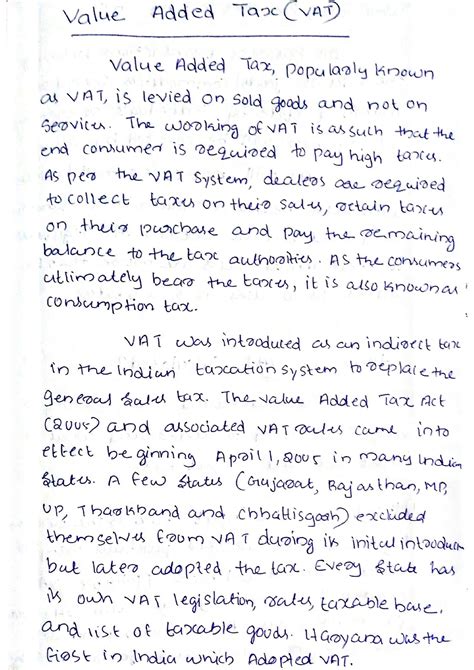 Value Added Tax (VAT)
Value Added Tax, popularly known
as VAT, is levied on sold goods and not on
Services. The working of VAT is as such that the
end consumer is required to pay high taxes.
As per the VAT System, dealers are required
to collect taxes on their sales, retain taxes
on their purchase and pay the remaining
balance to the tax authorities. As the consumers
utlimately bear the taxes, it is also known as
consumption tax.
VAT was introduced as an indirect tax
in the Indian taxcation system to replace the
General Sales tax. The value Added Tax Act
(2005) and associated VAT rules came into
effect beginning April 1, 2005 in many Indian
States. A few States (Gujarat, Rajasthan, MP,
UP, Jharkhand and Chhattisgarh) excluded
themselves from VAT during its inital introduction
but later adopted the tax. Every State has
its own VAT legislation, rates, taxable base,
and list of taxable goods. Haryana was the
first in India which Adopted VAT.